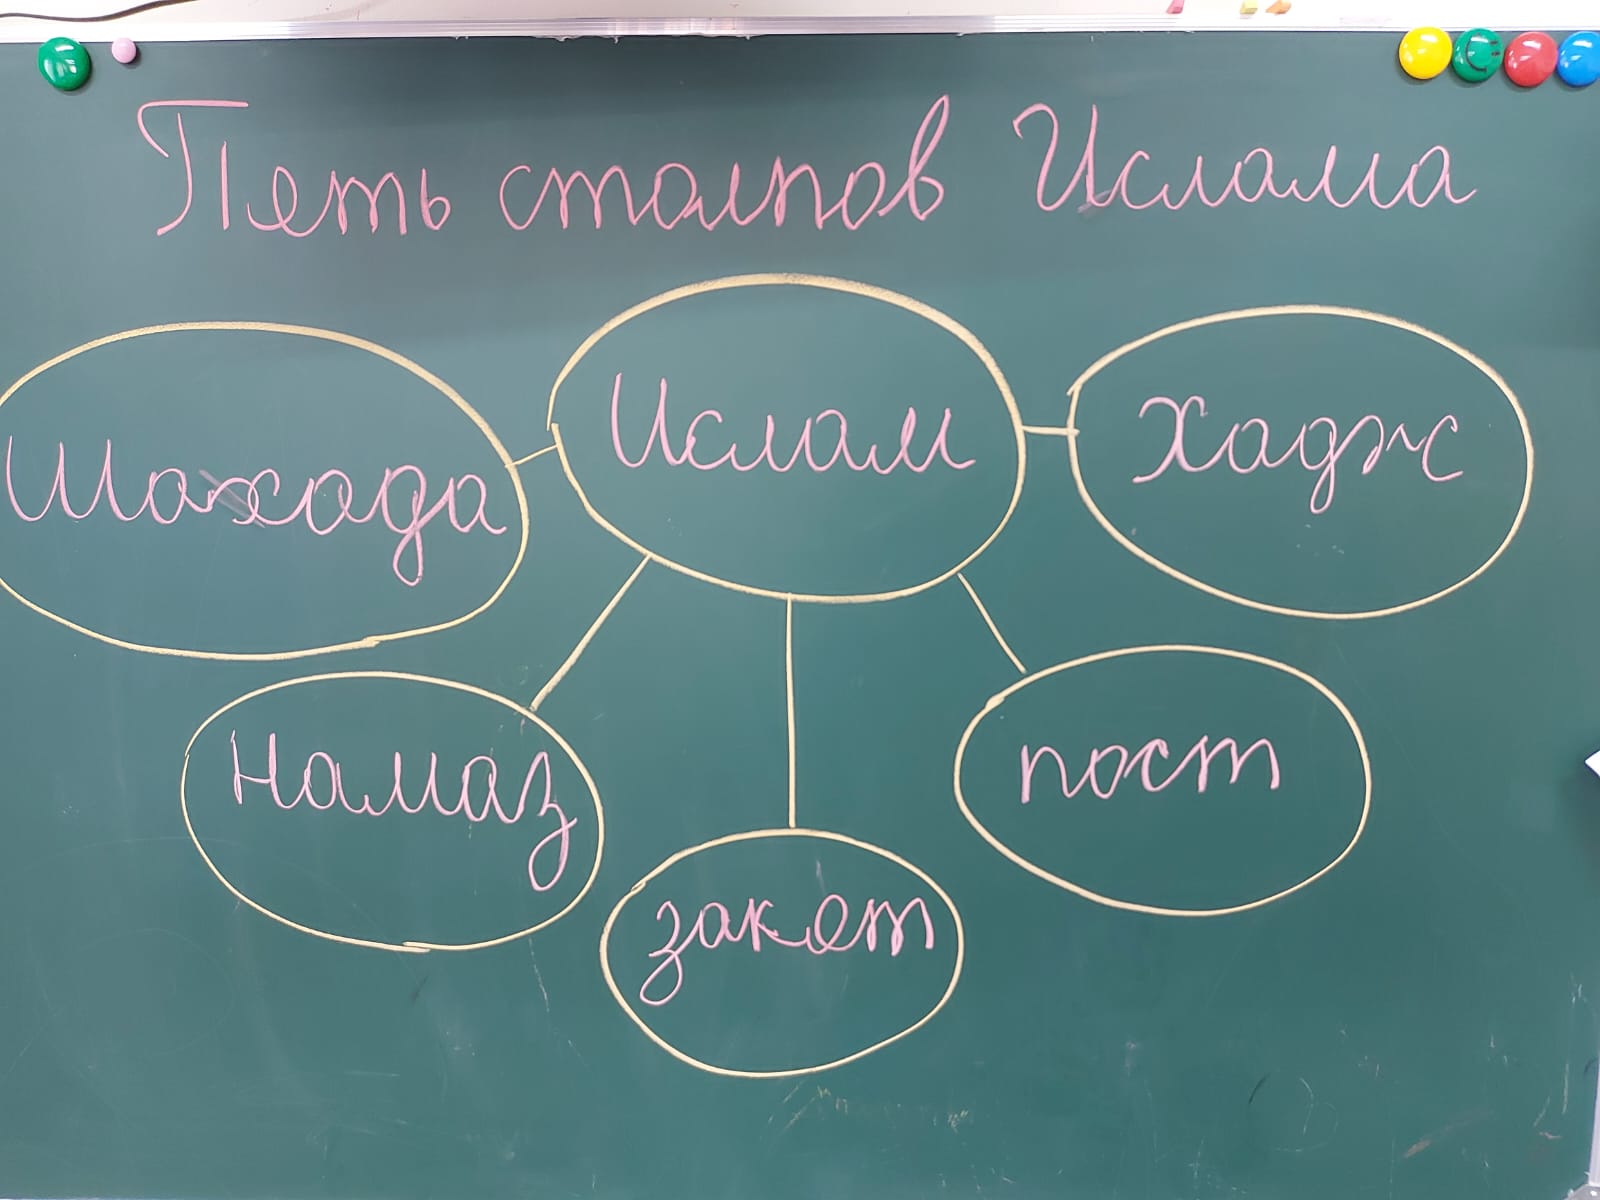 Пять столпов Ислама
Шахада
Ислам
Хадж
Намаз
пост
закят